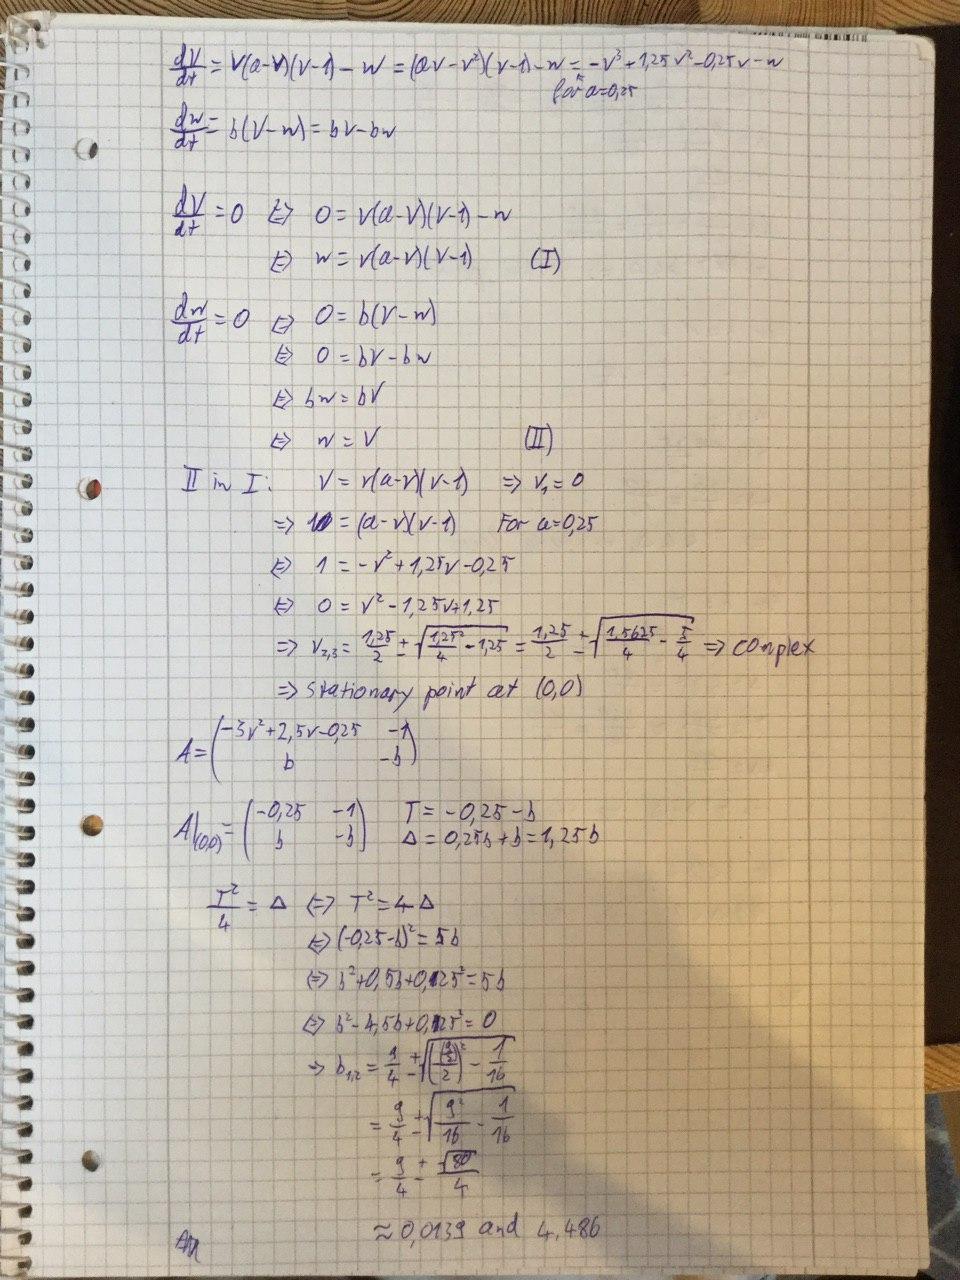 dV/dt = v(a-v)(v-1) - w = (av-v²)(v-1)-w = -v³+1,25v²-0,25v-w
for a=0,25
dw/dt = b(v-w) = bv-bw
dV/dt = 0 ⇔ 0 = v(a-v)(v-1)-w
⇔ w = v(a-v)(v-1) (I)
dw/dt = 0 ⇔ 0 = b(v-w)
⇔ 0 = bv-bw
⇔ bw = bv
⇔ w = v (II)
II in I: v = v(a-v)(v-1) ⇒ v₁ = 0
⇒ 1 = (a-v)(v-1) For a=0,25
⇔ 1 = -v²+1,25v-0,25
⇔ 0 = v²-1,25v+1,25
⇒ v₂,₃ = 1,25/2 ± √(1,25²/4 - 1,25) = 1,25/2 ± √(1,5625/4 - 5/4) ⇒ complex
⇒ stationary point at (0,0)
A = (-3v²+2,5v-0,25 -1
b -b)
A|(0,0) = (-0,25 -1 T = -0,25-b
b -b) Δ = 0,25b+b = 1,25b
T²/4 = Δ ⇔ T² = 4Δ
⇔ (-0,25-b)² = 5b
⇔ b²+0,5b+0,25² = 5b
⇔ b²-4,5b+0,25² = 0
⇒ b₁,₂ = 9/4 ± √(((9/2)/2)² - 1/16)
= 9/4 ± √(9²/16 - 1/16)
= 9/4 ± √80/4
≈ 0,0139 and 4,486